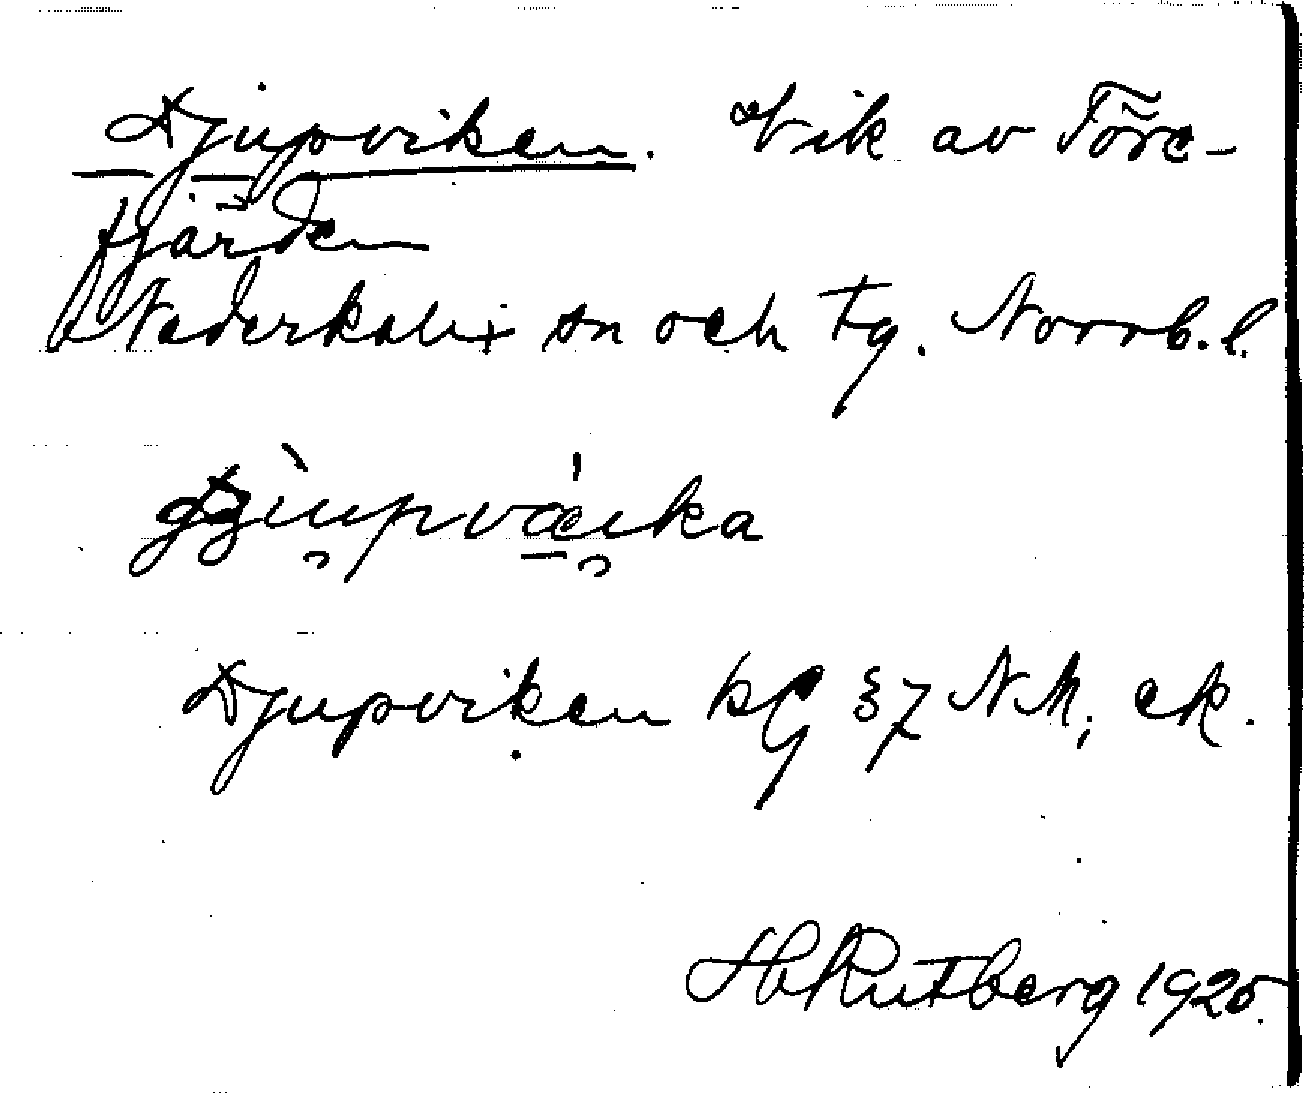 Djupviken. Vik av Töre-
fjärden
Nederkalix sn och tg. Norrb. l.
Djupviken § 7 NM, ek.
H Rutberg 1925.